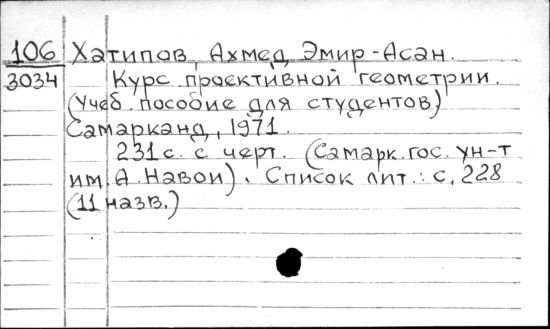 106 Хатипов, Ахмед Эмир-Асан.
3034 Курс проективной геометрии.
(Учеб. пособие для студентов)
Самарканд, 1971.
231 с. с черт. (Самарк. гос. ун-т
им. А. Навои). Список лит.: с. 228
(11 назв.)